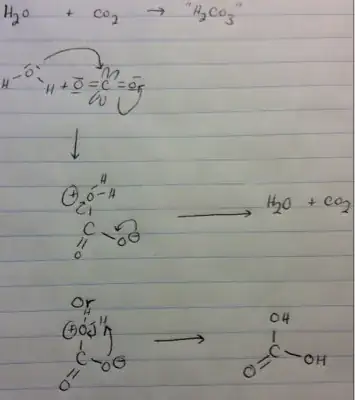 H₂O + CO₂ → "H₂CO₃"
H O H + O=C=O
⊕ O-H H
C O O⊖ → H₂O + CO₂
Or
H
⊕ O H
C O O⊖ → OH
O OH